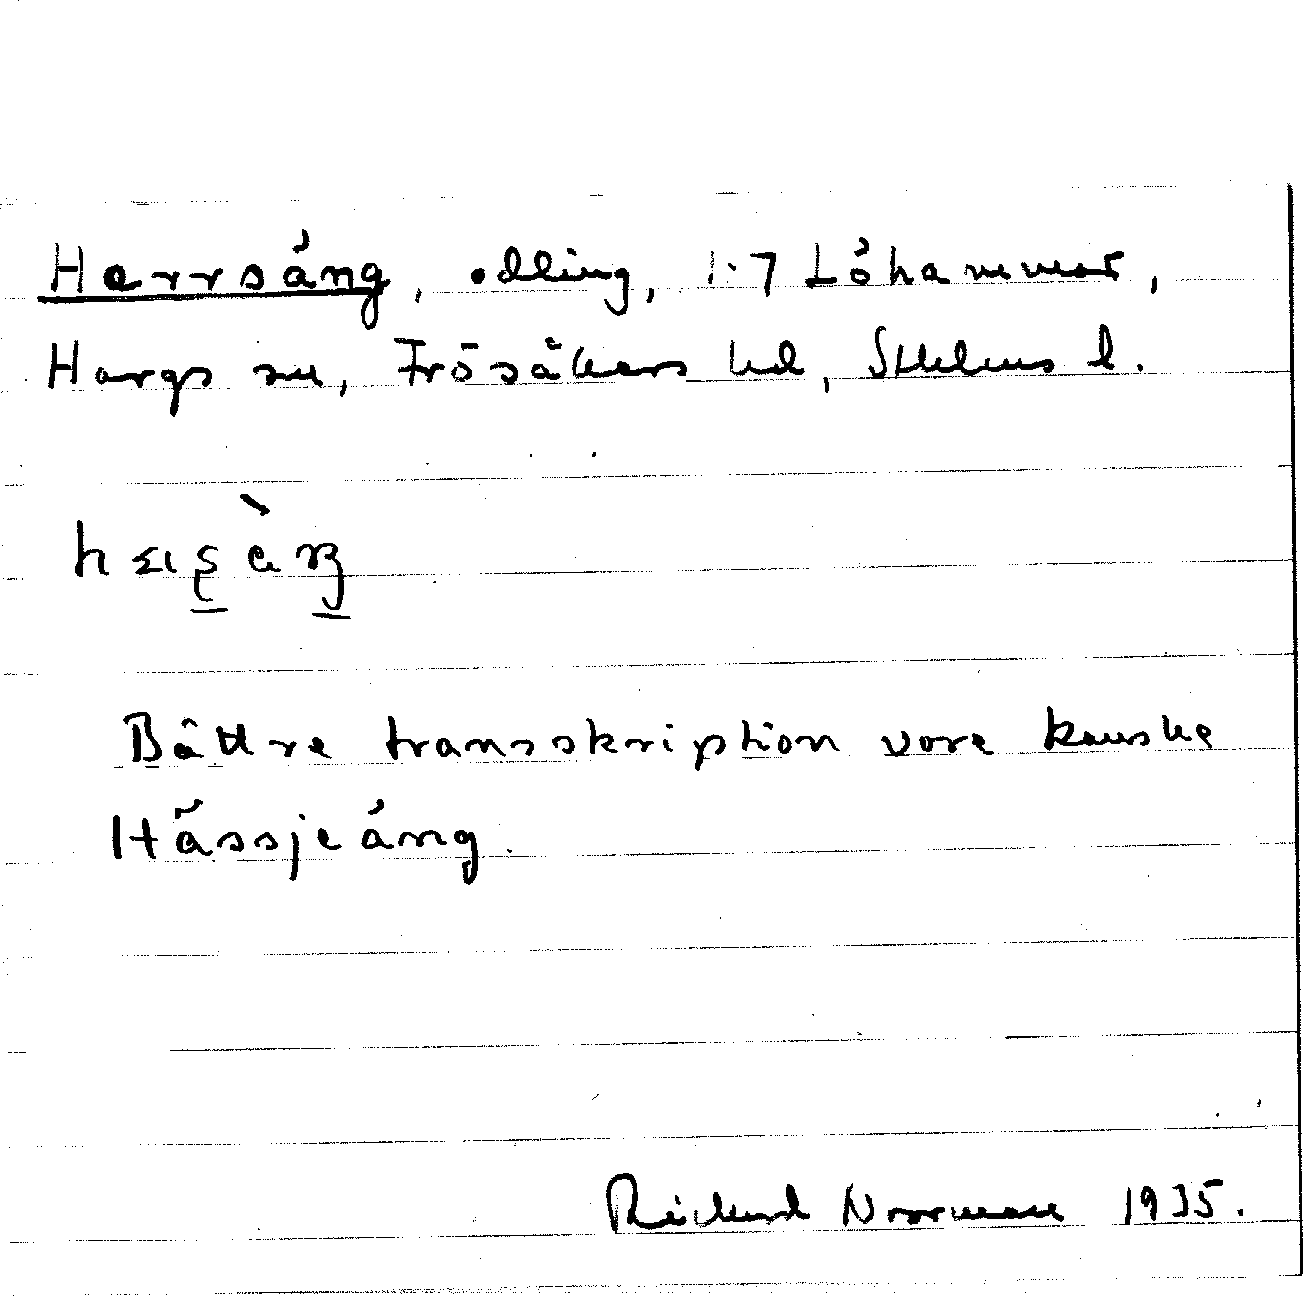 Herrsäng, odling, 1:7 Löhammar,
Hargs sn, Frösåkers hd, Sthlms l.
Bättre transskription vore kanske
Hässjeäng.
Rickard Norrman 1935.